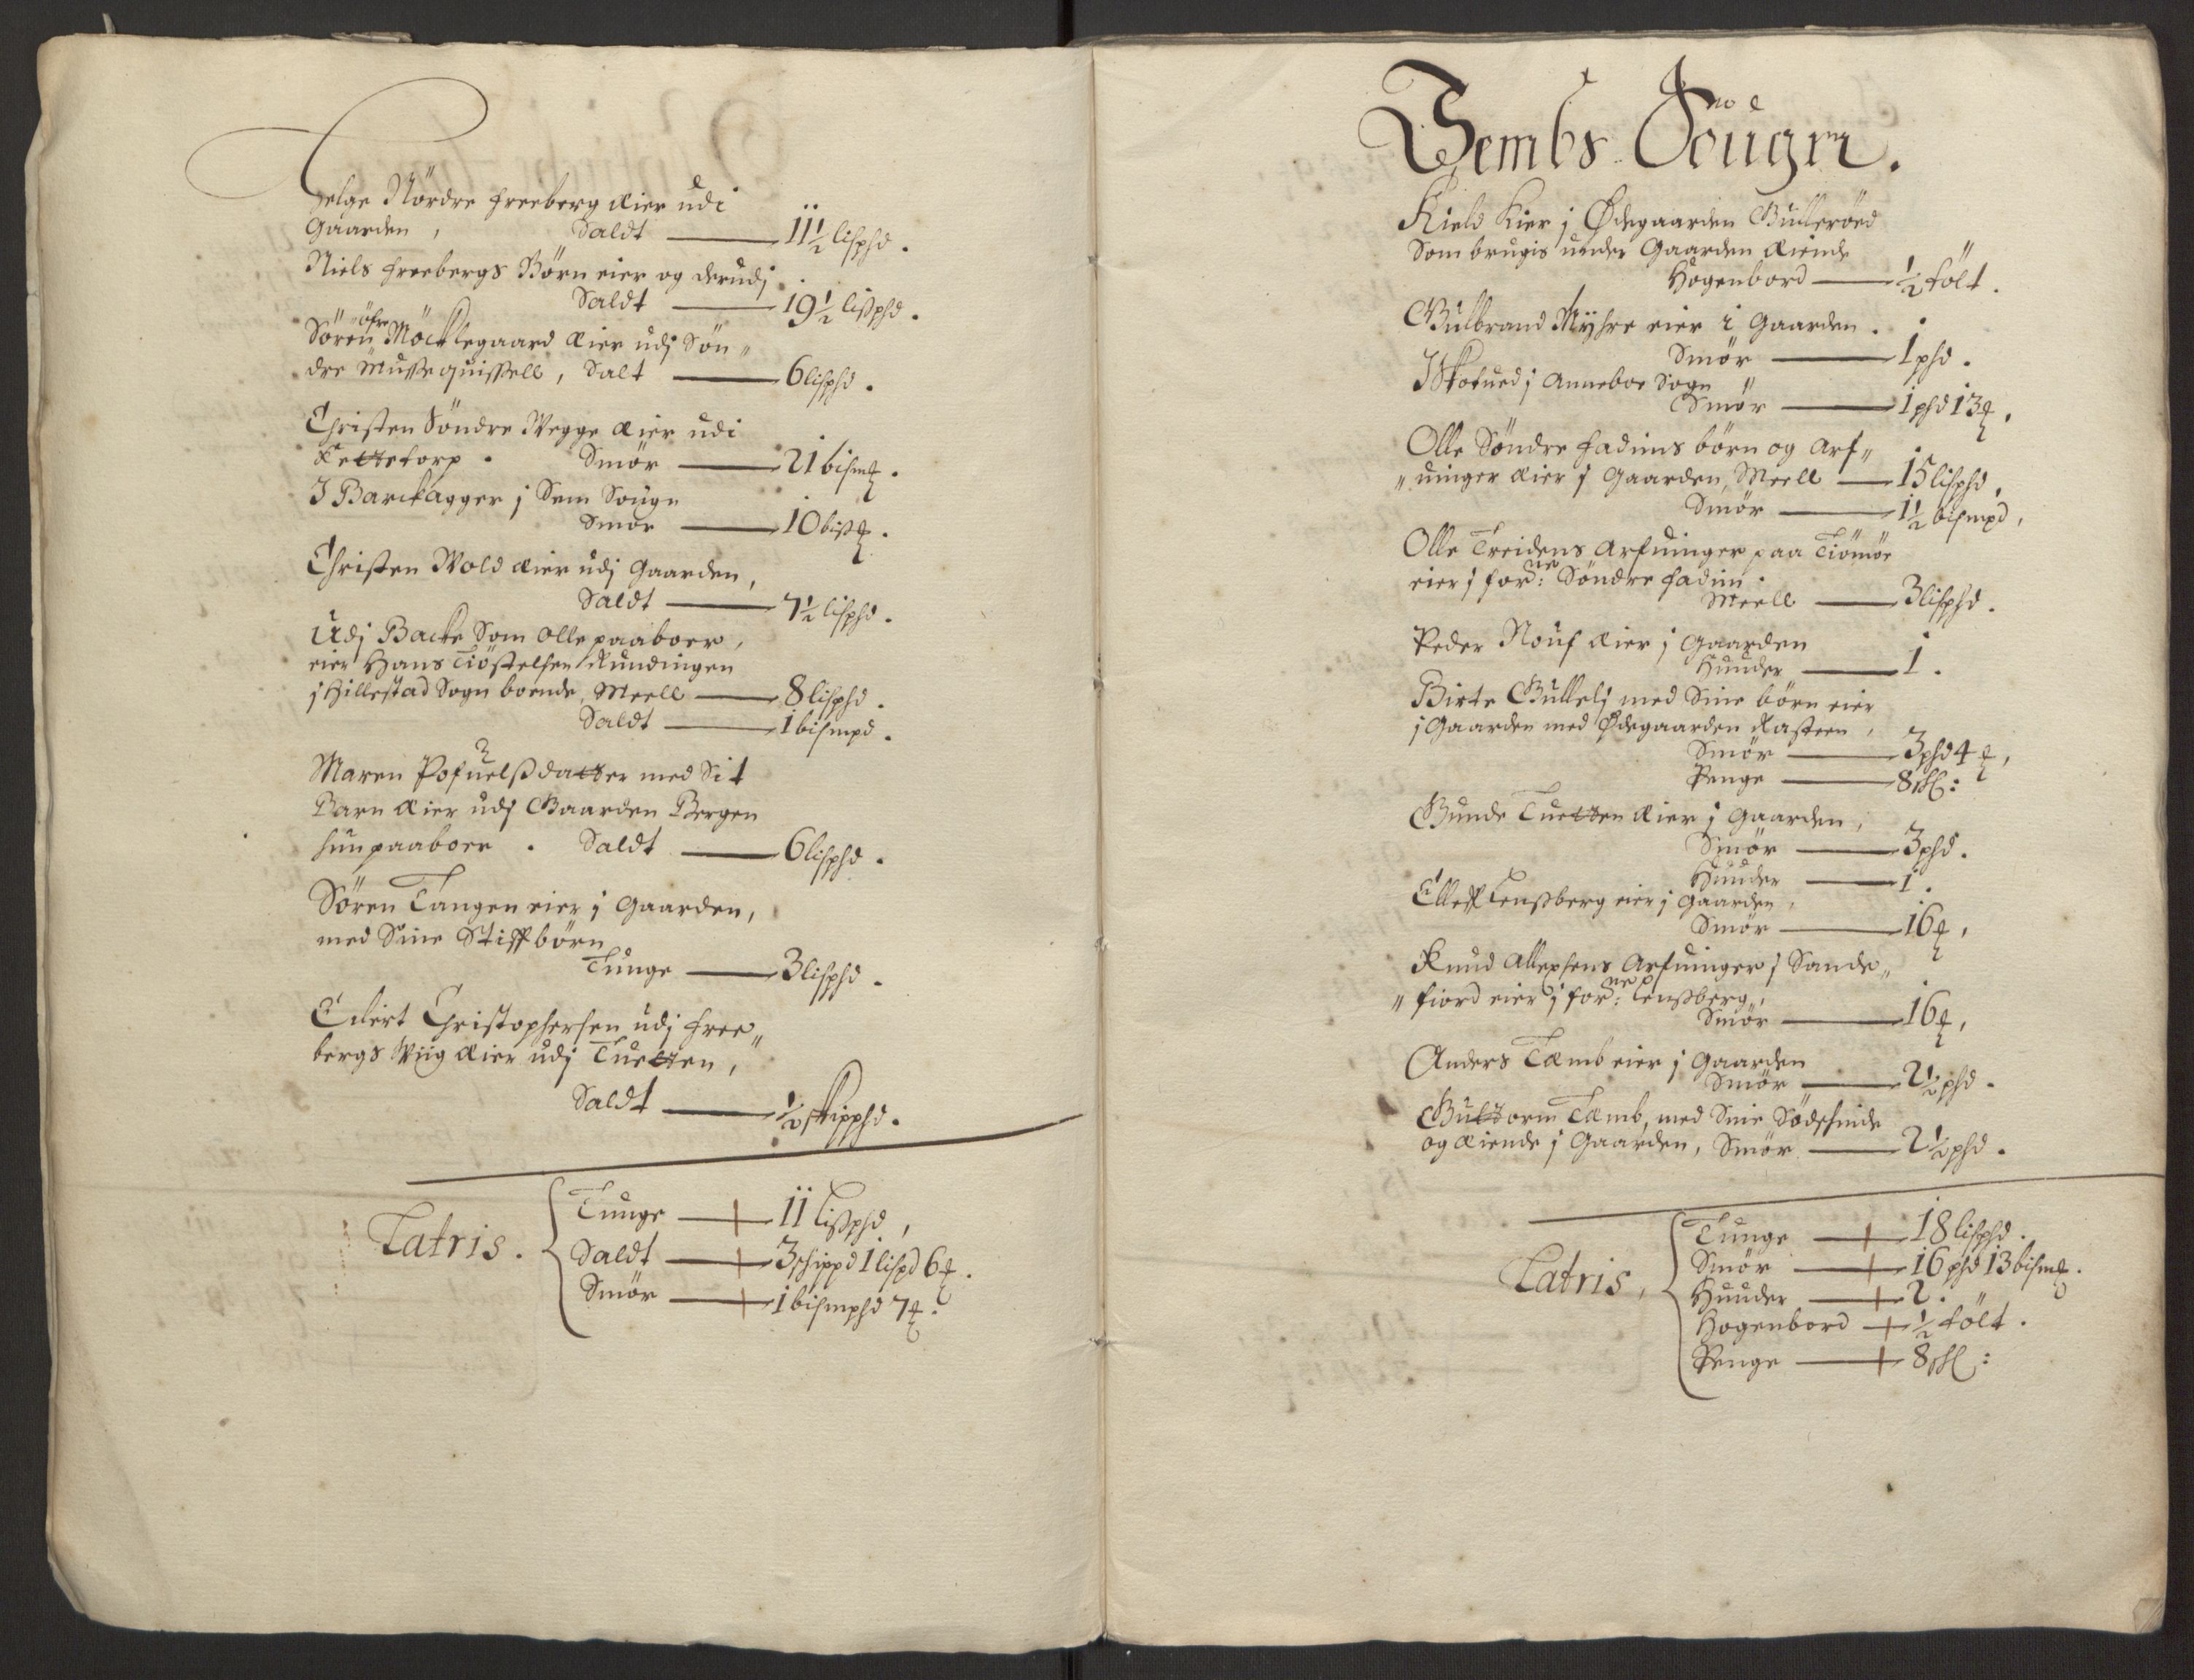 Helge Nördre freeberg Æier udi
Gaarden, Saldt — 11½ lißphd.
Niels freebergs Börn eier og derudj
Saldt — 19½ lißphd.
Sören öfre Möcklegaard Æier udj Sön„
dre Mussequissell, Salt — 6 lißphd.
Christen Söndre Wegge Æier udi
Rettetorp. Smör — 21 bismꝶ.
J Barckagger j Sem Sougn
Smör — 10 bißꝶ.
Christen Wold Æier udj Gaarden,
Saldt — 7½ lißphd.
Udj Backe Som Olle paaboer,
eier Hans Tiöstelsen Rundingen
j Hillestad Sogn boende, Meell — 8 lißphd.
Saldt — 1 bismpd.
Maren Pofuelßdatter med Sit
Barn Æier udj Gaarden Bergen
hun paaboer. Saldt — 6 lißphd.
Sören Tangen eier j Gaarden,
med Sine Stiffbörn
Tunge — 3 lißphd.
Eilert Christophersen udj free„
bergs Wiig Æier udj Tuetten,
Saldt — ½ skipphd.
Latris.
Tunge — 11 Lißphd,
Saldt — 3 schippd 1 lispd 6 ꝶ.
Smör — 1 bismphd 7 ꝶ.
Sembs Sougn.
Kield Kier j Ødegaarden Bulleröed
Som brugis under Gaarden Æiende
Hogenbord — ½ tölt.
Gulbrand Myhre eier i Gaarden.
Smör — 1 phd.
J Skotued j Anneboe Sogn „
Smör — 1 phd 13 ꝶ,
Olle Söndre Fadums börn og Arf„
„uinger Æier j Gaarden, Meell — 15 lißphd,
Smör — 1½ bismpd,
Olle Treidens Arfuinger paa Tiömöe
eier j forne: Söndre Fadum.
Meell — 3 lißphd.
Peder Nouf Æier j Gaarden
Huuder — 1.
Birte Gullelj med Sine börn eier
j Gaarden med Ødegaarden Rasteen,
Smör — 3 phd 4 ꝶ,
Penge — 8 sk:
Gunde Tuetten Æier j Gaarden,
Smör — 3 phd.
Huuder — 1.
Elleff Lensberg eier j Gaarden,
Smör — 16 ꝶ,
Knud Allexsens Arfuinger j Sande„
„fiord eier j forne: Lenßberg,
Smör — 16 ꝶ,
Anders Tæmb eier j Gaarden
Smör — 2½ phd.
Guttorm Tæmb, med Sine Södschinde
og Æiende j Gaarden, Smör — 2½ phd.
Latris,
Tunge — 18 lißphd.
Smör — 16 phd 13 bismꝶ.
Huuder — 2.
Hogenbord — ½ tölt.
Penge — 8 sk: